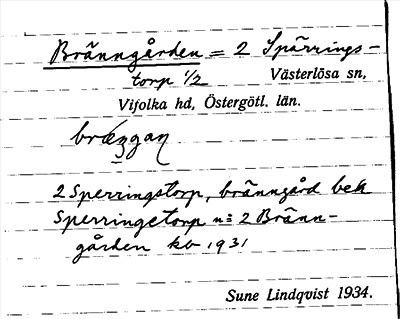 Bränngården = 2 Spärrings-
torp 1/2 Västerlösa sn,
Vifolka hd, Östergötl. län.
2 Sperringstorp, bränngård bek
Sperringetorp n:o 2 Bränn-
gården kb 1931
Sune Lindqvist 1934.